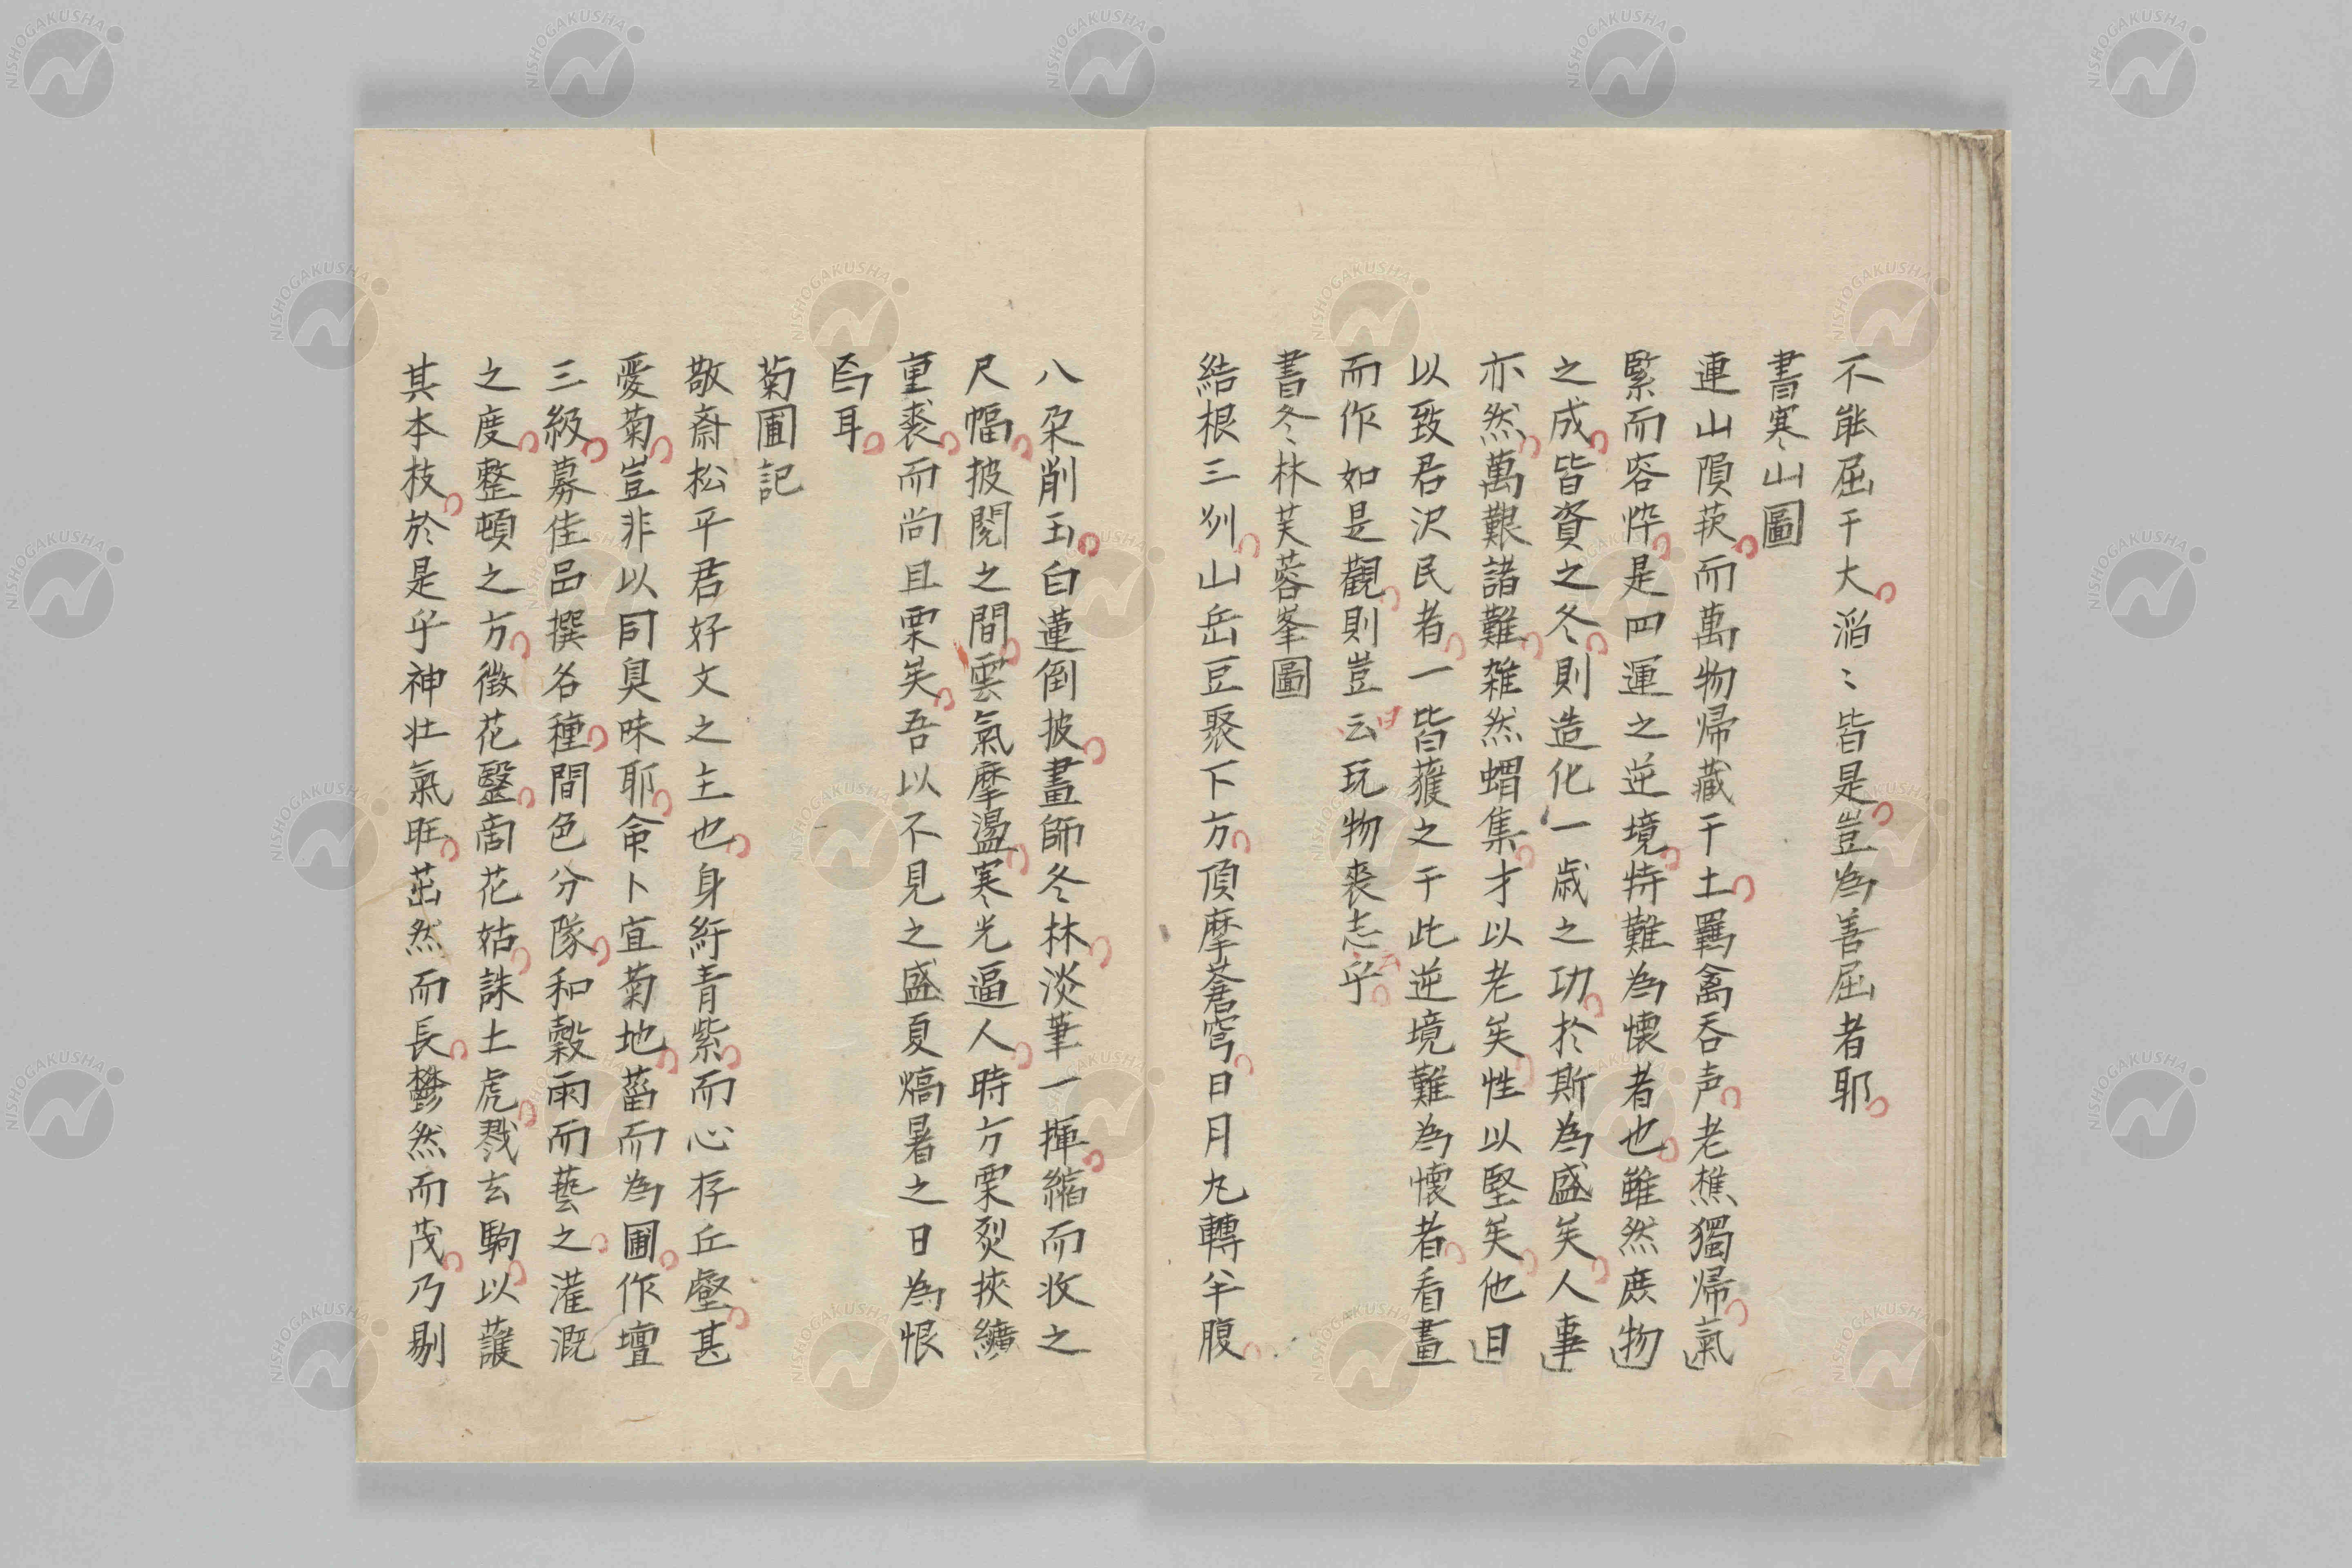 不能屈于大滔〻皆是豈為善屈者耶
書寒山圖
連山隕荻而萬物帰藏于土羈禽吞声老樵獨帰氣
緊而容悴是四運之逆境特難為懐者也雖然庶物
之成皆資之冬則造化一歳之功於斯為盛矣人事
亦然萬艱諸難雑然蝟集才以老矣性以堅矣他日
以致君沢民者一皆獲之于此逆境難為懐者看畫
而作如是觀則豈云玩物喪志乎
書冬林芙蓉峯圖
結根三州山岳豆聚下方頂摩蒼穹日月丸轉半腹
八朶削玉白蓮倒披畫師冬林淡筆一揮縮而收之
尺幅披閲之間雲氣摩盪寒光逼人時方栗烈挾纊
重裘而尚且栗矣吾以不見之盛夏熇暑之日為恨
焉耳
菊圃記
敬斎松平君好文之士也身紆青紫而心存丘壑甚
愛菊豈非以同臭味耶命卜宜菊地菑而為圃作壇
三級募佳品撰名種間色分隊和穀雨而藝之灌漑
之度整頓之方徴花毉啇花姑誅土虎戮玄駒以護
其本枝於是乎神壮氣旺茁然而長鬱然而茂乃剔
NISHOGAKUSHA